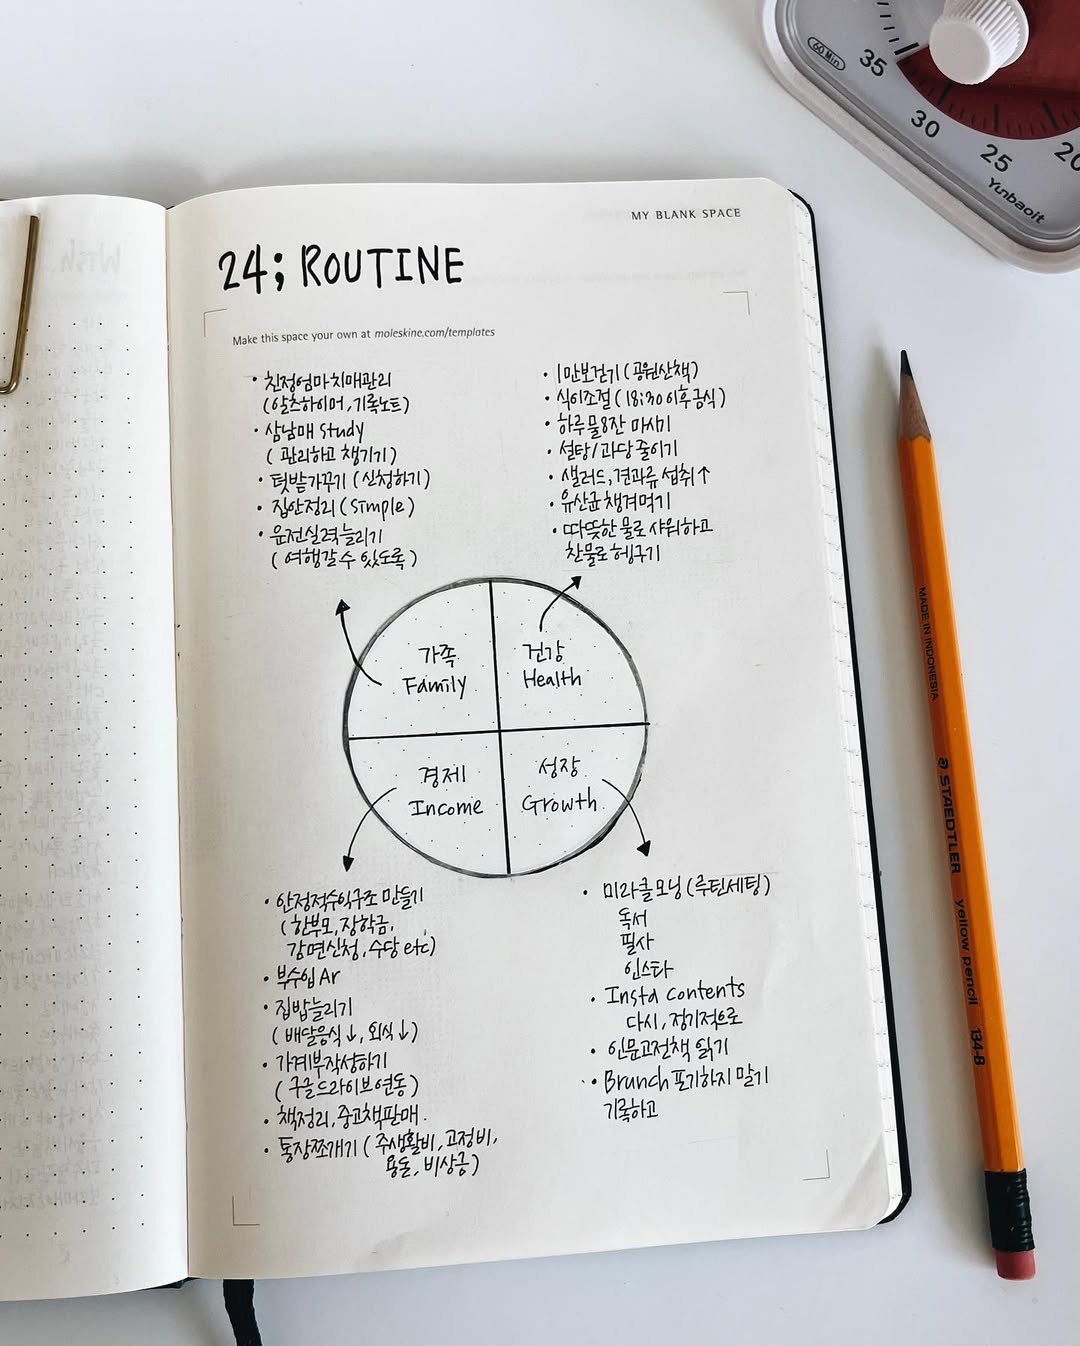 MY BLANK SPACE
24; ROUTINE
Make this space your own at moleskine.com/templates
• 친정엄마치매관리
(알츠하이머, 기록노트)
• 삼남매 study
( 관리하고 챙기기)
• 텃밭가꾸기 (신청하기)
• 집안정리 (simple)
• 운전실력늘리기
( 여행갈 수 있도록)
• 1만보걷기 (공원산책)
• 식이조절 (18:30 이후금식)
• 하루물8잔 마시기
• 설탕/과당 줄이기
• 샐러드, 견과류 섭취↑
• 유산균 챙겨먹기
• 따뜻한 물로 샤워하고
찬물로 헹구기
가족
Family
건강
Health
경제
Income
성장
Growth
• 안정적수익구조 만들기
( 한부모, 장학금,
감면신청, 수당 etc)
• 부수입 Ar
• 집밥늘리기
( 배달음식↓, 외식↓)
• 가계부작성하기
( 구글드라이브연동)
• 책정리, 중고책판매.
• 통장쪼개기 ( 주생활비, 고정비,
용돈, 비상금)
• 미라클모닝 (루틴세팅)
독서
필사
인스타
• Insta contents
다시, 정기적으로
• 인문고전책 읽기
• Brunch 포기하지 말기
기록하고
60 Min
35
30
25
20
Yunbaoit
MADE IN INDONESIA
STAEDTLER yellow pencil 134-B